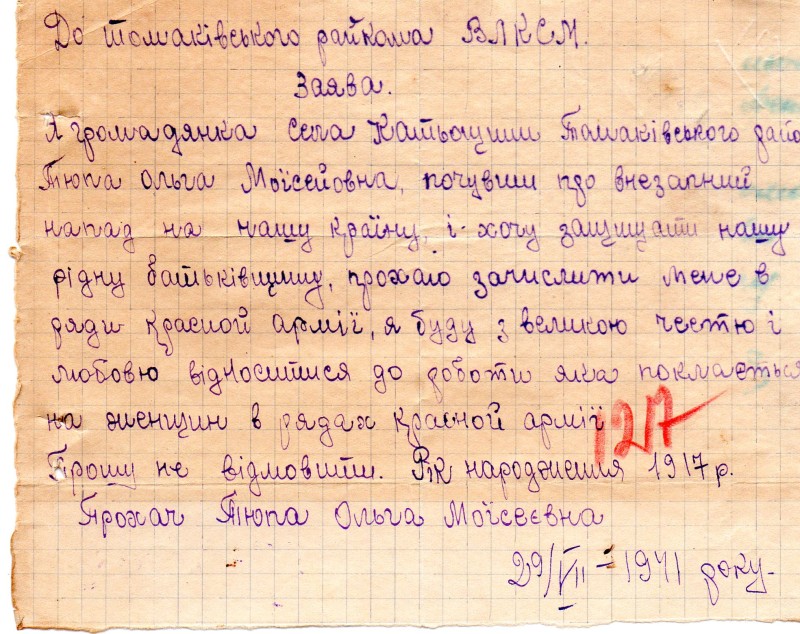 До Томаківського райкома ВЛКСМ.
Заява.
Я громадянка села Катьощини Томаківського райо
Тюпа Ольга Моїсейовна, почувши про внезапний
напад на нашу країну, і хочу защищати нашу
рідну батьківщину, прохаю зачислити мене в
ряди красной армії, я буду з великою честю і
любовю відноситися до роботи яка покмається
на женщин в рядах красной армії
127
Прошу не відмовити. Рік народження 1917 р.
Прохач Тюпа Ольга Моїсеєвна
29/VII – 1941 року.